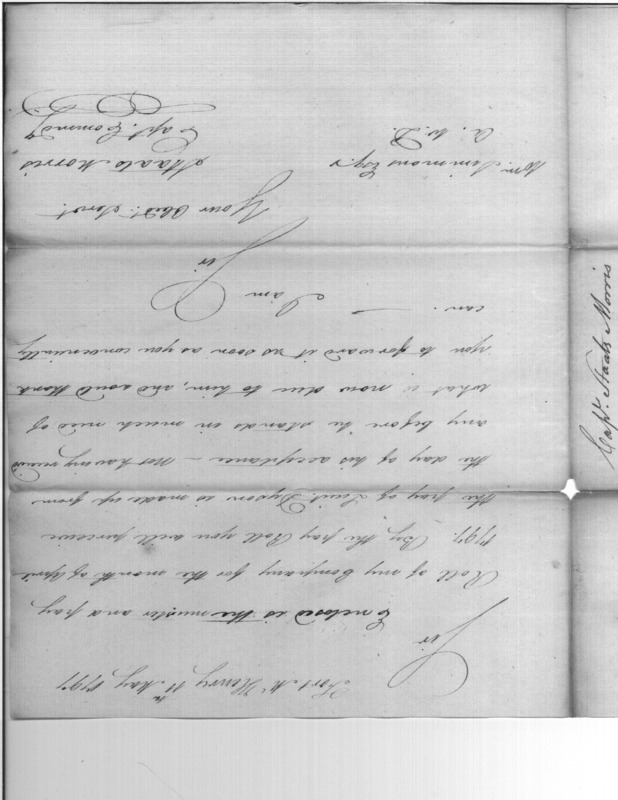 Fort McHenry 11th May 1797
Sir
Enclosed is the muster and pay
Roll of my Company for the month of April
1797. By the pay Roll you will perceive
the pay of Lieut. Dyson is made up from
the day of his acceptance – Not having received
any before he stands in much need of
what is now due to him, and would thank
you to forward it as soon as you conveniently
can. I am
Sir
Your Obedt. Servt.
Staats Morris
Capt. Commdg
Wm. Simmons Esqr
A. W. D.
Capt. Staats Morris